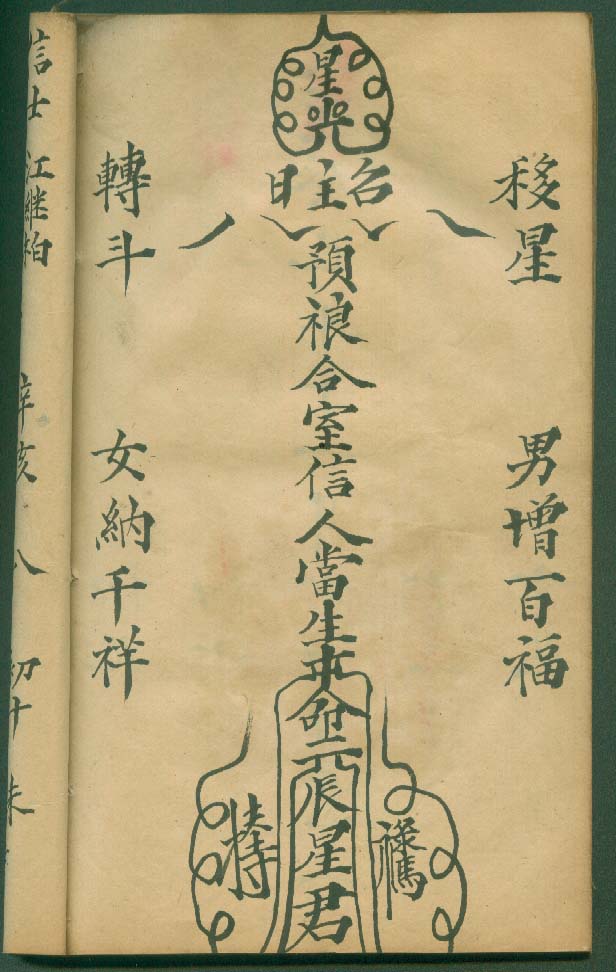 移星
男增百福
星光
日主台
預禳合室信人當生本命元辰星君
祿馬
扶持
轉斗
女納千祥
信士 江继柏
辛亥 八 初十 未